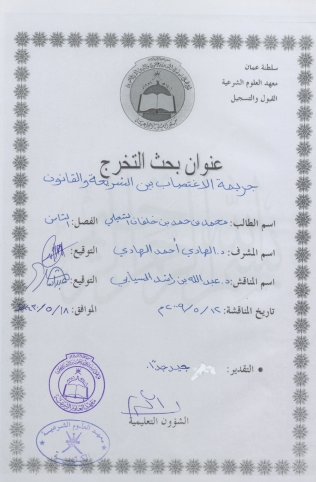 سلطنة عمان
معهد العلوم الشرعية
القبول والتسجيل
عنوان بحث التخرج
جريمة الاغتصاب بين الشريعة والقانون
اسم الطالب: محمد بن حمد بن خلفان الشبلي الفصل: الثامن
اسم المشرف: د. الهادي أحمد الهادي التوقيع:
اسم المناقش: د. عبدالله بن راشد السيابي التوقيع:
تاريخ المناقشة: ١٢/٥/٢٠٠٩م الموافق:
التقدير: جيد جدا
الشؤون التعليمية
معهد العلوم الشرعية